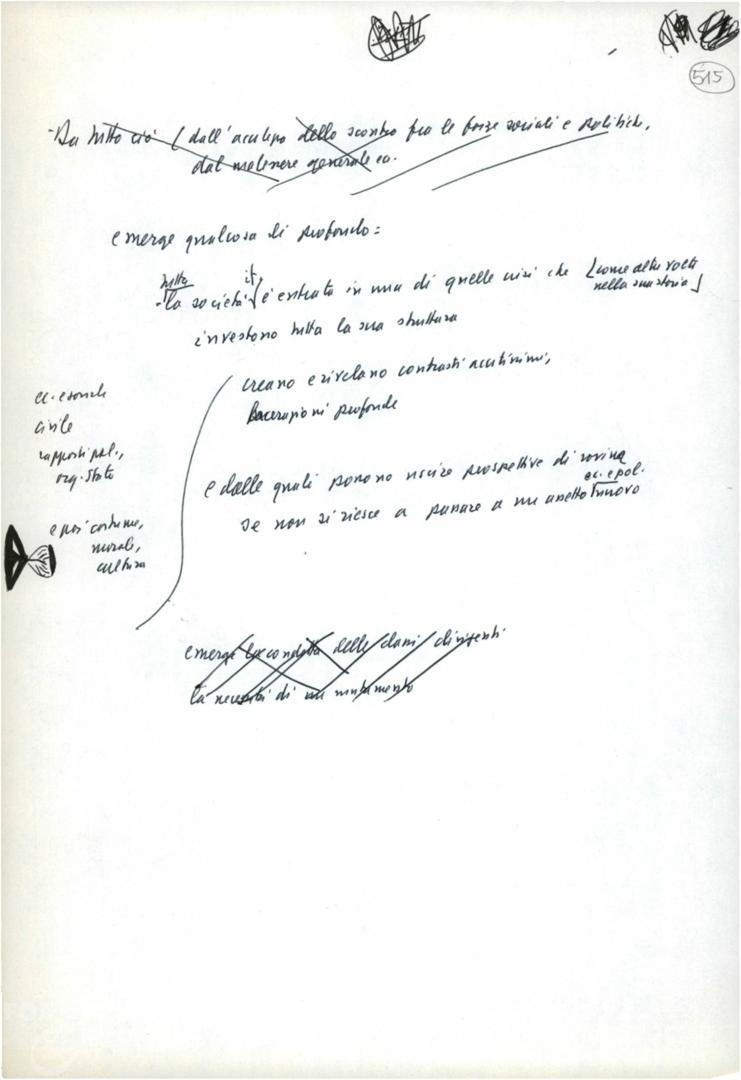 515
- Da tutto ciò (dall'acutezza dello scontro fra le forze sociali e politiche,
dal malessere generale ecc.
emerge qualcosa di profondo:
tutta it.
- la società è entrata in una di quelle crisi che [come altre volte
nella sua storia]
investono tutta la sua struttura
creano e rivelano contrasti acutissimi,
lacerazioni profonde
ec. e sociale
civile
rapporti pol.,
org. Stato
e poi costume,
morale,
cultura
e dalle quali possono uscire prospettive di rovina
ec. e pol.
se non si riesce a passare a un assetto nuovo
emerge la condotta delle classi dirigenti
la necessità di un mutamento